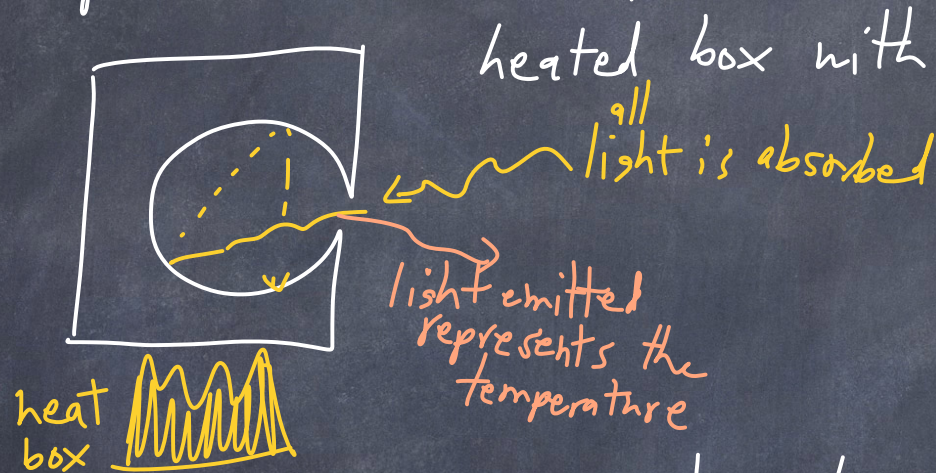 heated box with
all
light is absorbed
light emitted
represents the
temperature
heat
box